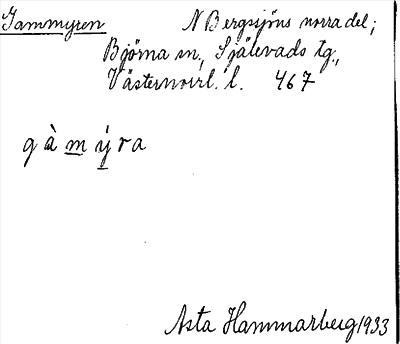 Gammyren N Bergsjöns norra del;
Björna sn., Själevads tg.,
Västernorrl. l. 467
gàmýra
Asta Hammarberg 1933